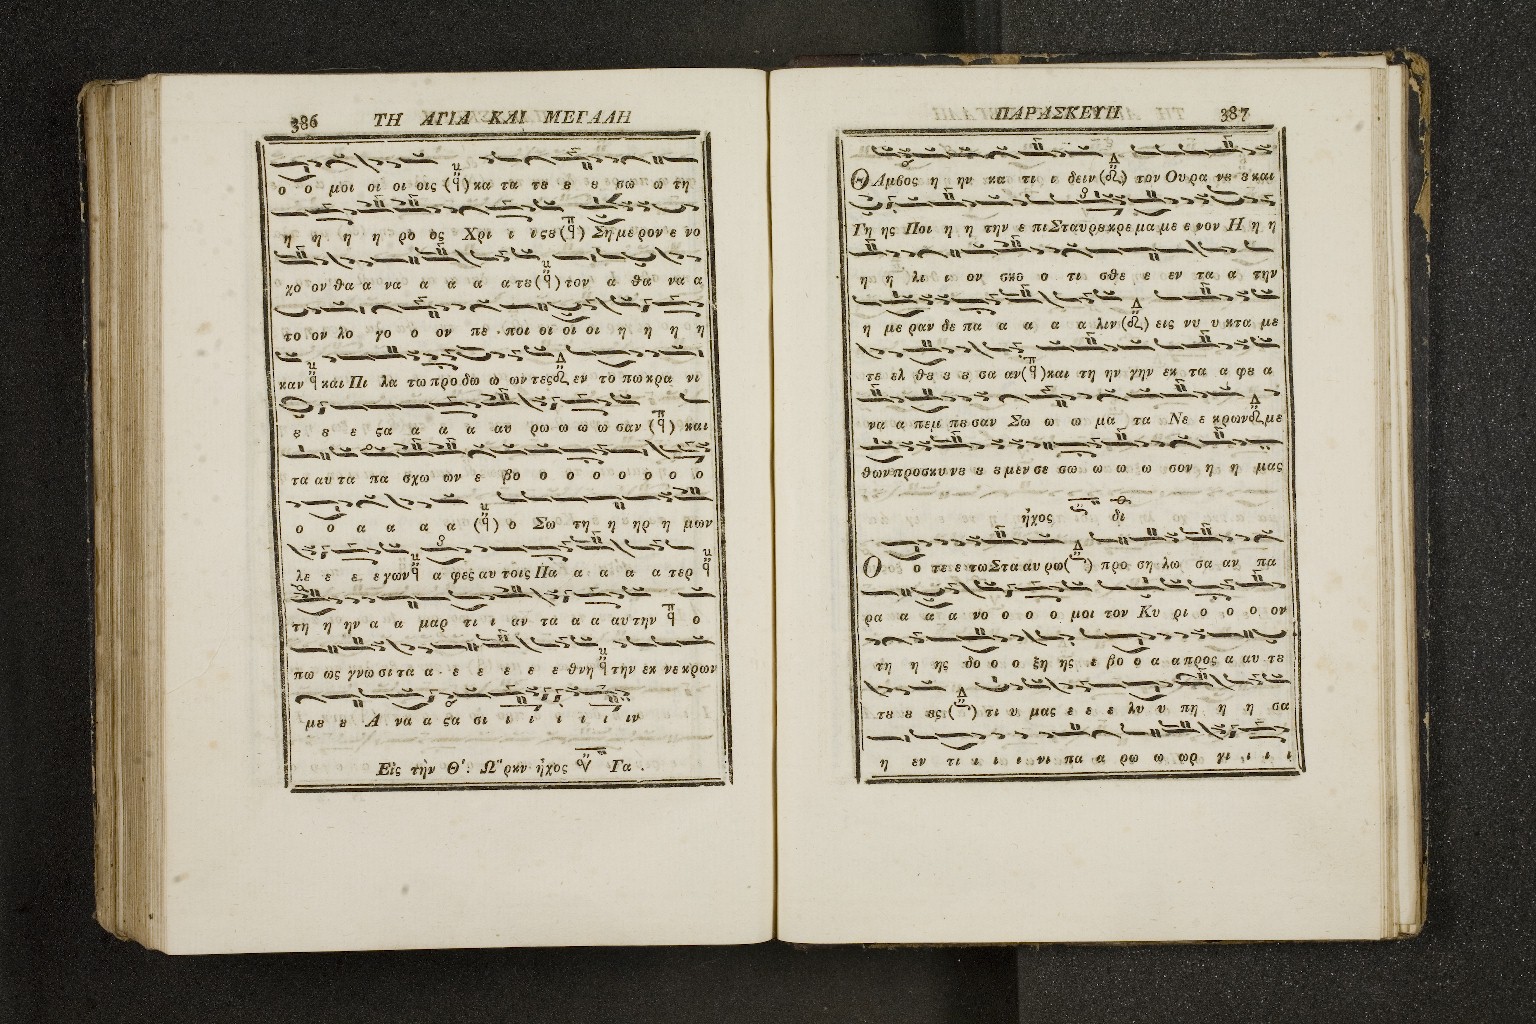 386 ΤΗ ΑΓΙΑ ΚΑΙ ΜΕΓΑΛΗ
ο ο μοι οι οι οις ( ) κα τα τȣ ȣ ȣ σω ω τη
η η η η ρο ος Χρι ι ι ςȣ ( ) Σημερον ε νο
χο ον θα α να α α α α τȣ ( ) τον α θα να α
το ον λο γο ο ον πε ποι οι οι οι η η η η
καν και Πι λα τω προ δω ω ων τες εν το πω κρα νι
ȣ ȣ ε ςα α α α αυ ρω ω ω ω σαν ( ) και
τα αυ τα πα σχω ων ε βο ο ο ο ο ο ο ο
ο ο α α α α ( ) ο Σω τη η ηρ η μων
λε ε ε εγων α φες αυ τοις Πα α α α α τερ
τη η ην α α μαρ τι ι αν τα α α αυ την ο
πω ως γνω σι τα α ε ε ε ε ε θνη την εκ νεκρων
μȣ ȣ Α να α ςα σι ι ι ι ι ι ιν
Εἰς τὴν Θ΄: Ὥραν ἦχος Γα .
ΠΑΡΑΣΚΕΥΗ 387
Θ Αμβος η ην κα τι ι δειν ( ) τον Ου ρα νȣ ȣ και
Γη ης Ποι η η την ε πι Σταυρȣ κρε μα με ε νον Η η η
η η λι ι ον σκο ο τι σθε ε εν τα α την
η με ραν δε πα α α α α λιν ( ) εις νυ υ κτα με
τε ελ θȣ ȣ ȣ σα αν ( ) και τη ην γην εκ τα α φȣ α
να α πεμ πȣ σαν Σω ω ω μα τα Νε ε κρων με
θων προσκυ νȣ ȣ ȣ μεν σε σω ω ω ω σον η η μας
ἦχος δι
Ο ο τε ε τω Στα αυ ρω ( ) προ ση λω σα αν πα
ρα α α α νο ο ο ο μοι τον Κυ ρι ο ο ο ον
τη η ης δο ο ο ξη ης ε βο ο α α προς α αυ τȣ
τȣ ȣ ȣς ( ) τι υ μας ε ε ε λυ υ πη η η σα
η εν τι ι ι ι νι πα α ρω ω ωρ γι ι ι ι